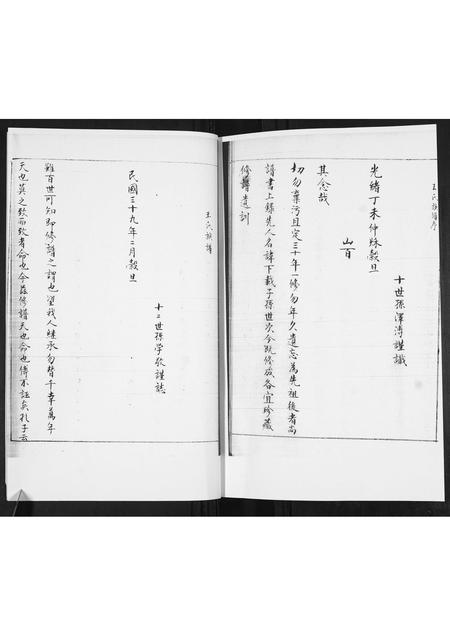 王氏族譜序
十世孫澤溥謹識
光緒丁未仲秌穀旦
山百
其念哉
切勿棄污且定三十年一修勿年久遺忘為先祖後者尚
譜書上錄先人名諱下載子孫世次今既修成各宜珍藏
修譜遺訓
王氏族譜
十二世孫学敬謹誌
民國三十九年二月穀旦
雖百世可知即修譜之謂也望我人継承勿替千幸萬年
天也莫之致而致者命也今茲修譜天也命也偉不誣矣孔子云